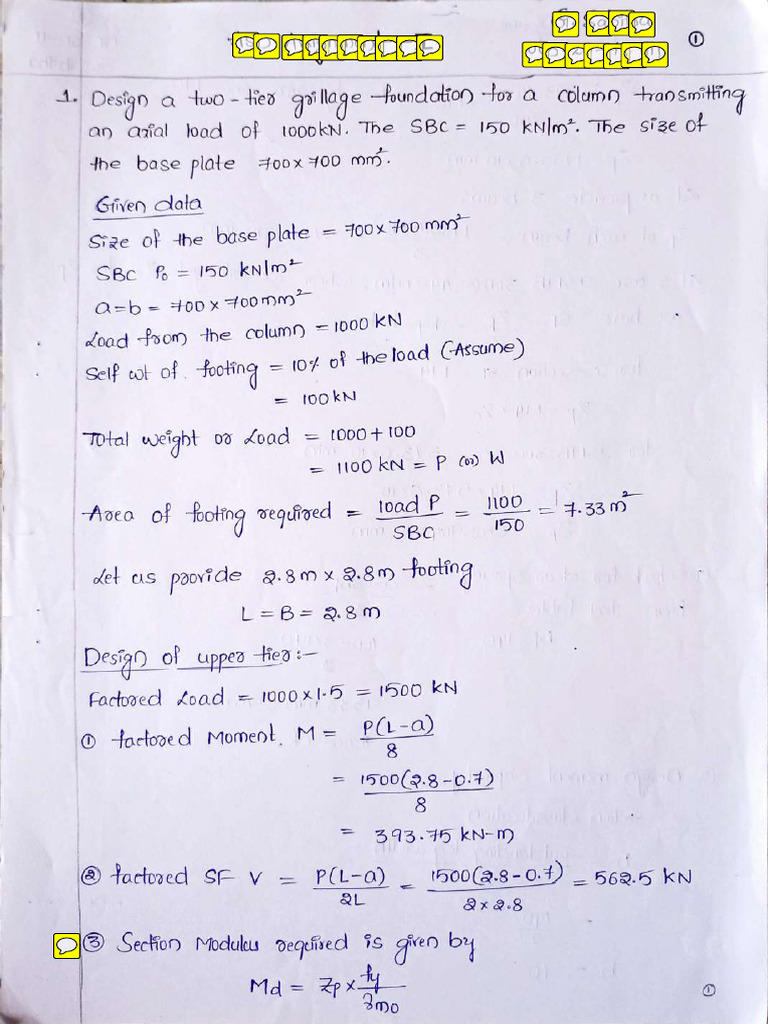 ①
1. Design a two-tier grillage foundation for a column transmitting
an axial load of 1000kN. The SBC = 150 kN/m². The size of
the base plate 700x700 mm².
Given data
Size of the base plate = 700x700mm²
SBC P₀ = 150 kN/m²
a=b = 700x700mm²
Load from the column = 1000 KN
Self wt of footing = 10% of the load (Assume)
= 100KN
Total weight or Load = 1000+100
= 1100 KN = P (or) W
Area of footing required = load P / SBC = 1100 / 150 = 7.33 m²
Let us provide 2.8m x 2.8m footing
L = B = 2.8m
Design of upper tier:-
Factored Load = 1000x1.5 = 1500 KN
① factored Moment. M = P(L-a) / 8
= 1500(2.8-0.7) / 8
= 393.75 kN-m
② factored SF V = P(L-a) / 2L = 1500(2.8-0.7) / 2x2.8 = 562.5 KN
③ Section Modulus required is given by
Md = Zp x fy / γm0
①